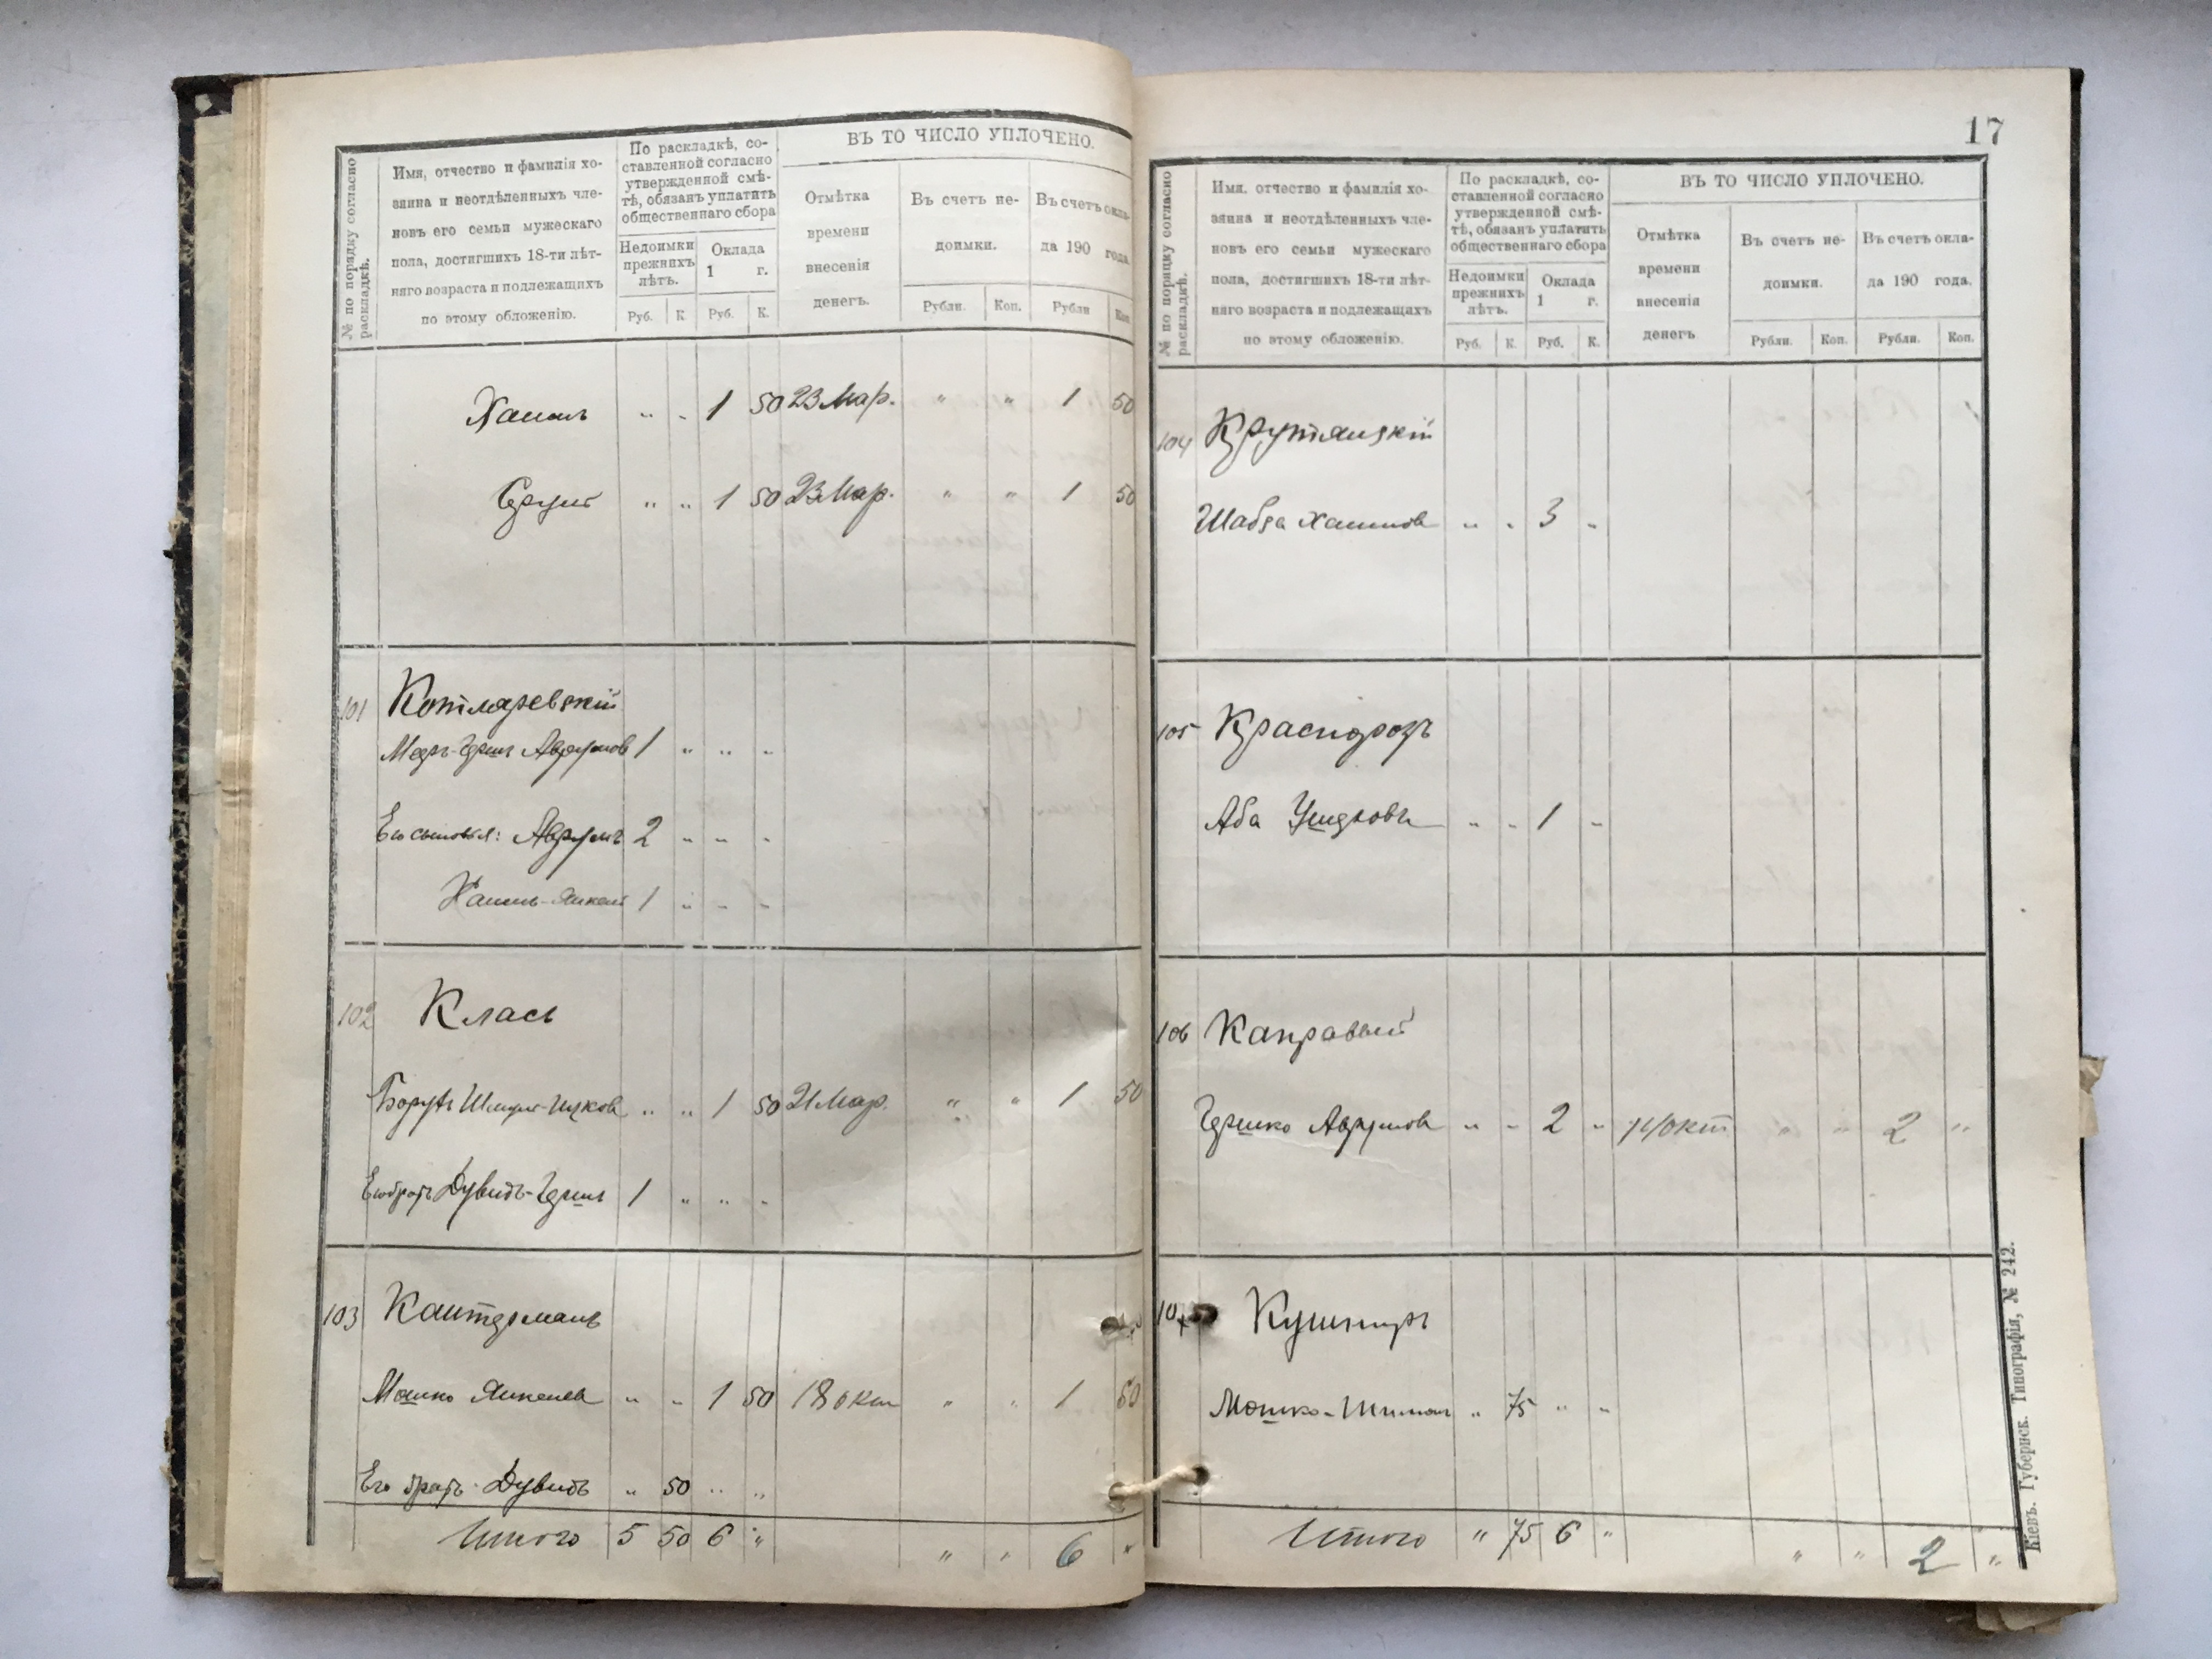 № по порядку согласно раскладкѣ.
Имя, отчество и фамилія хо-
зяина и неотдѣленныхъ чле-
новъ его семьи мужескаго
пола, достигшихъ 18-ти лѣт-
няго возраста и подлежащихъ
по этому обложенію.
По раскладкѣ, со-
ставленной согласно
утвержденной смѣ-
тѣ, обязанъ уплатить
общественнаго сбора
Недоимки
прежнихъ
лѣтъ.
Оклада
1 г.
Руб. К Руб. К.
ВЪ ТО ЧИСЛО УПЛОЧЕНО.
Отмѣтка
времени
внесенія
денегъ.
Въ счет не-
доимки.
Въ счетъ окла-
да 190 года
Рубли. Коп. Рубли Коп
Хаимъ " " 1 50 23 Мар. " " 1 50
Сруль " " 1 50 23 Мар. " " 1 50
101 Котляревскій
Мееръ-Гершъ Аврумов 1 " " "
Его сыновья: Аврумъ 2 " " "
Хаимъ-Янкель 1 " " "
102 Класъ
Борухъ " " 1 50 21 Мар. " " 1 50
Его братъ Дувидъ-Гершъ 1 " " "
103 Кантерманъ
Мошко Янкелев " " 1 50 18 окт " " 1 50
Его братъ Дувидъ " 50 " "
Итого 5 50 6 " " " 6 "
17
№ по порядку согласно раскладкѣ.
Имя. отчество и фамилія хо-
зяина и неотдѣленныхъ чле-
новъ его семьи мужескаго
пола, достигшихъ 18-ти лѣт-
няго возраста и подлежащихъ
по этому обложенію.
По раскладкѣ, со-
ставленной согласно
утвержденной смѣ-
тѣ, обязанъ уплатить
общественнаго сбора
Недоимки
прежнихъ
лѣтъ.
Оклада
1 г.
Руб. К. Руб. К.
ВЪ ТО ЧИСЛО УПЛОЧЕНО.
Отмѣтка
времени
внесенія
денегъ
Въ счетъ не-
доимки.
Въ счетъ окла-
да 190 года.
Рубли. Коп. Рубли. Коп.
104 Крутянскій
Шабса Хаимов " " 3 "
105
Аба " " 1 "
106 Каправый
Гершко Аврумов " " 2 " окт " " 2 "
107 Кушниръ
Мошко-Шимон " 75 " "
Итого " 75 6 " " " 2 "
Кіевъ. Губернск. Типографія, № 242.